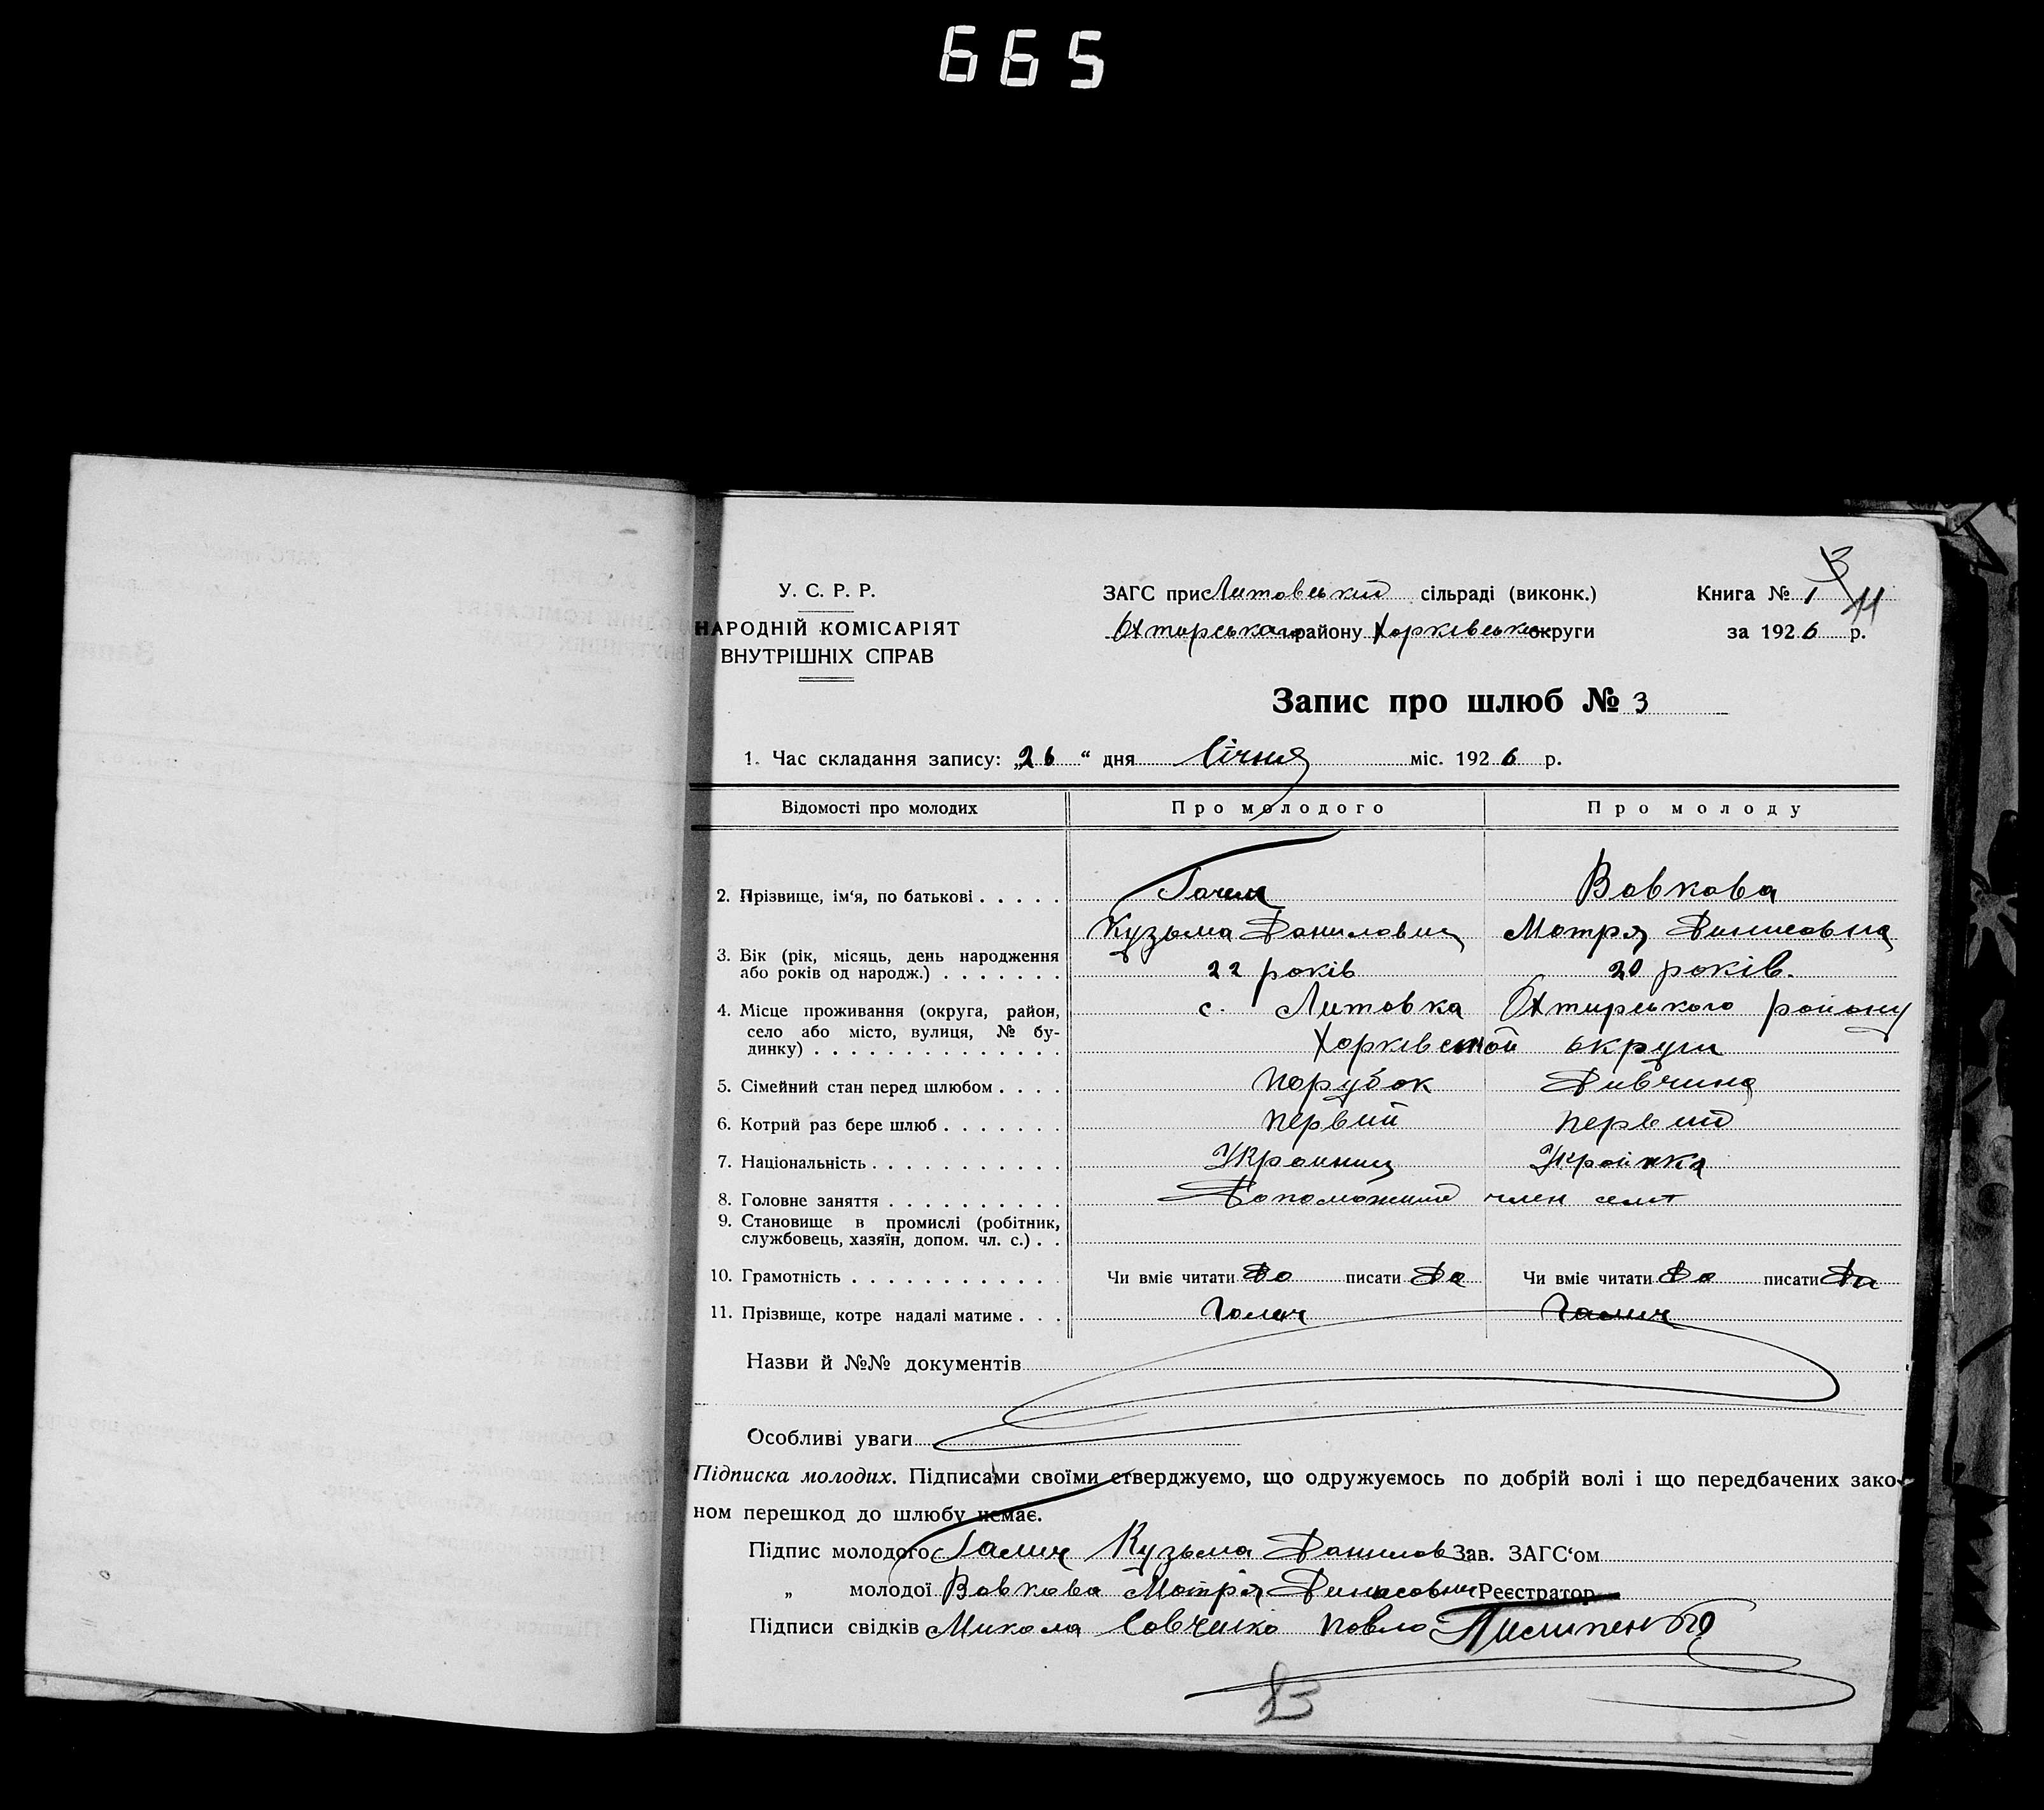 665
3
У. С. Р. Р.
НАРОДНІЙ КОМІСАРІЯТ
ВНУТРІШНІХ СПРАВ
ЗАГС при Литовський сільраді (виконк.)
Охтирського району Харківсько округи
Книга № 1 11
за 1926 р.
Запис про шлюб № 3
1. Час складання запису: „26“ дня Січня міс. 1926 р.
Відомості про молодих Про молодого Про молоду
2. Прізвище, ім'я, по батькові . . . . . Галич Вовкова
Кузьма Данилович Мотря Динисовна
3. Вік (рік, місяць, день народження
або років од народж.) . . . . . . . 22 років 20 років.
4. Місце проживання (округа, район, с. Литовка Охтирського району
село або місто, вулиця, № бу-
динку) . . . . . . . . . . . . . . Харківської округи
5. Сімейний стан перед шлюбом . . . . Парубок Дивчина
6. Котрий раз бере шлюб . . . . . . . первий первий
7. Національність . . . . . . . . . . . Украинец Украінка
8. Головне заняття . . . . . . . . . . Допоможний член
9. Становище в промислі (робітник,
службовець, хазяїн, допом. чл. с.) . .
10. Грамотність . . . . . . . . . . . . Чи вміє читати Да писати Да Чи вміє читати Да писати Да
11. Прізвище, котре надалі матиме . . . Галич Галич
Назви й №№ документів
Особливі уваги
Підписка молодих. Підписами своїми стверджуємо, що одружуємось по добрій волі і що передбачених зако-
ном перешкод до шлюбу немає.
Підпис молодого Галич Кузьма Данилов Зав. ЗАГС'ом
„ молодої Вовкова Мотрія Динисовни Реєстратор
Підписи свідків Микола Савченко Павло